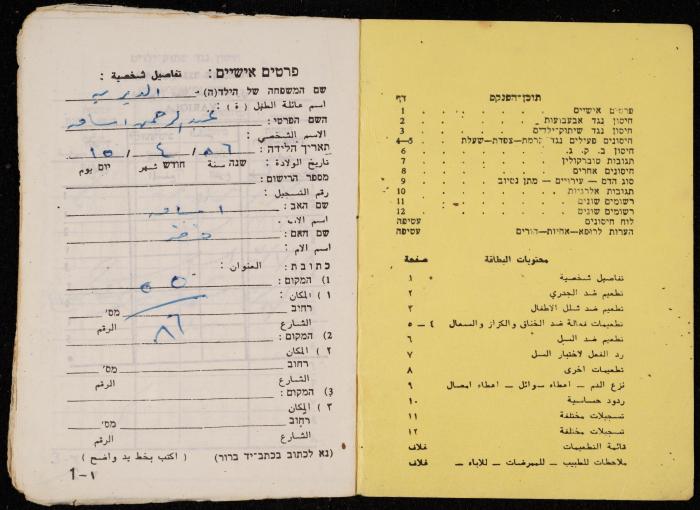 פרטים אישיים: تفاصيل شخصية :
שם המשפחה של הילד(ה)
اسم عائلة الطفل ( ة ) :
השם הפרטי: عبد الرحمن اسامه
الاسم الشخصي :
תאריך הלידה: 86 / 4 / 15
تاريخ الولادة : שנה سنة חודש شهر יום يوم
מספר הרישום:
رقم التسجيل :
שם האב: اسامه
اسم الاب :
שם האם:
اسم الام :
כתובת: العنوان :
1) המקום:
١ ) المكان :
רחוב מס׳
الشارع الرقم
2) המקום: 86
٢ ) المكان
רחוב מס׳
الشارع الرقم
3) המקום:
٣ ) المكان
רחוב מס׳
الشارع الرقم
(נא לכתוב בכתב-יד ברור) ( اكتب بخط يد واضح )
1-١
תוכן-הפנקס דף
פרטים אישיים 1
חיסון נגד אבעבועות 2
חיסון נגד שיתוק-ילדים 3
חיסונים פעילים נגד קרמת-צפדת-שעלת 4-5
חיסון ב. ק. ג. 6
תגובות טוברקולין 7
חיסונים אחרים 8
סוג הדם — עירויים — מתן נסיוב 9
תגובות אלרגיות 10
רשומים שונים 11
רשומים שונים 12
לוח חיסונים עטיפה
הערות לרופא-אחיות-הורים עטיפה
محتويات البطاقة صفحة
تفاصيل شخصية ١
تطعيم ضد الجدري ٢
تطعيم ضد شلل الاطفال ٣
تطعيمات فعالة ضد الخناق والكزاز والسعال ٤ — ٥
تطعيم ضد السل ٦
رد الفعل لاختبار السل ٧
تطعيمات اخرى ٨
نزع الدم — اعطاء سوائل — اعطاء امصال ٩
ردود حساسية ١٠
تسجيلات مختلفة ١١
تسجيلات مختلفة ١٢
قائمة التطعيمات غلاف
ملاحظات للطبيب — للممرضات — للاباء — غلاف